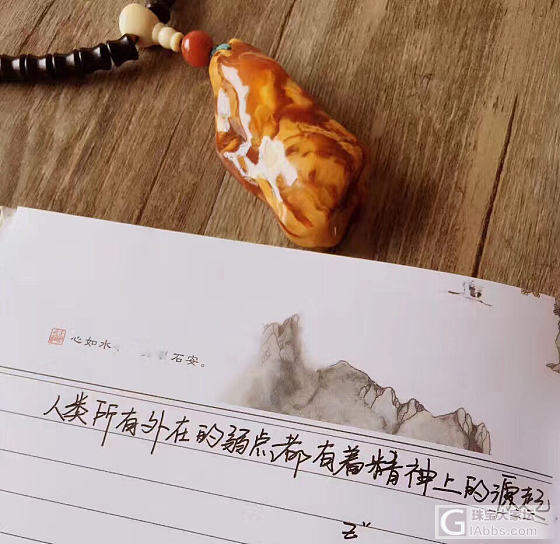 心如水 石安。
人类所有外在的弱点,都有着精神上的源起
珠宝大家坛
GIAbbs.com